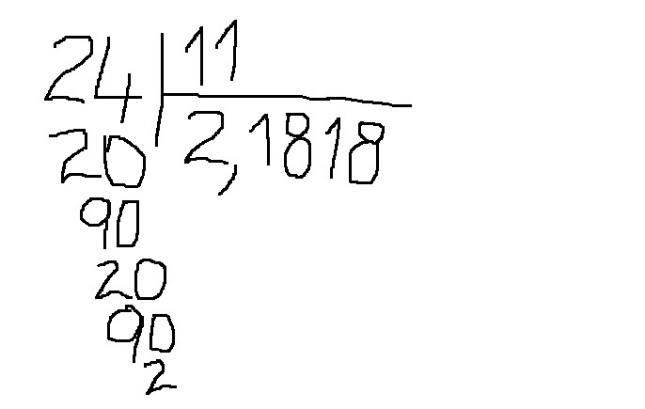 24 11
20 2,1818
90
20
90
2